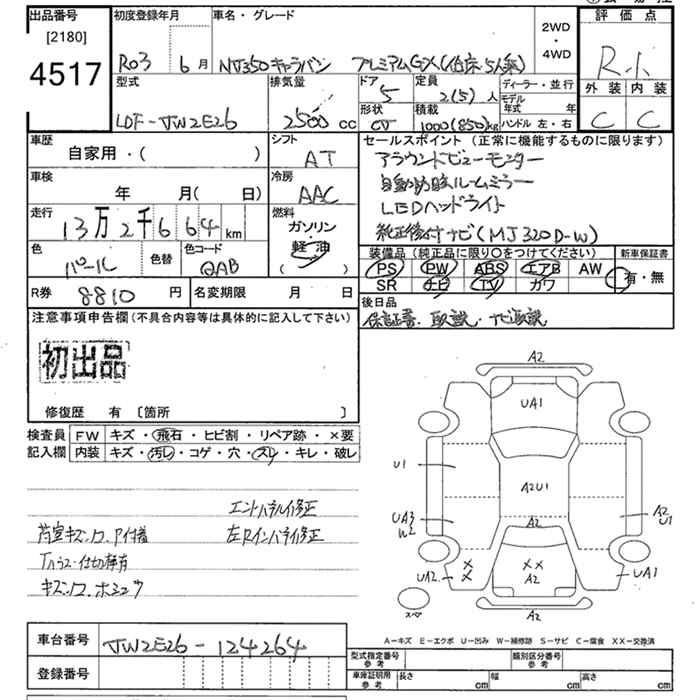 出品番号
[2180]
4517
初度登録年月
R03 6 月
車名・グレード
NV350キャラバン プレミアムGX(低床・5人乗)
2WD
・
4WD
評価点
R.小
外装 内装
C C
型式
LDF-VW2E26
排気量
2500 cc
ドア
5
定員
2(5) 人
形状
CV
積載
1000(850)kg
ディーラー・並行
モデル年式 年
ハンドル 左・右
車歴
自家用・( )
シフト
AT
車検
年 月( 日)
冷房
AAC
走行
13万2千664 km
燃料
ガソリン
・
軽・油
( )
色
パール
色替
色コード
QAB
R券
8810 円
名変期限 月 日
セールスポイント(正常に機能するものに限ります)
アラウンドビューモニター
自動防眩ルームミラー
LEDヘッドライト
純正後付ナビ(MJ320D-W)
装備品(純正品に限り○をつけてください)
PS PW ABS エアB AW
SR ナビ TV カワ
新車保証書
有・無
後日品
保証書、取説・ナビ取説
注意事項申告欄(不具合内容等は具体的に記入して下さい)
初出品
修復歴 有 [箇所 ]
検査員記入欄
FW キズ・飛石・ヒビ割・リペア跡・×要
内装 キズ・汚レ・コゲ・穴・スレ・キレ・破レ
エンドパネル修正
荷室キズ、凹、P付着
左Rインパネ修正
下ハウス・仕切棒有
キズ凹、ホシュウ
A2
UA1
U1
A2U1
UA3
W2
A2
A2
U1
XX
A2
XX
UA2
UA1
スペア
A2
A-キズ E-エクボ U-凹み W-補修跡 S-サビ C-腐食 XX-交換済
車台番号
VW2E26-124264
登録番号
型式指定番号
参考
類別区分番号
参考
車庫証明用
参考
長さ cm
幅 cm
高さ cm